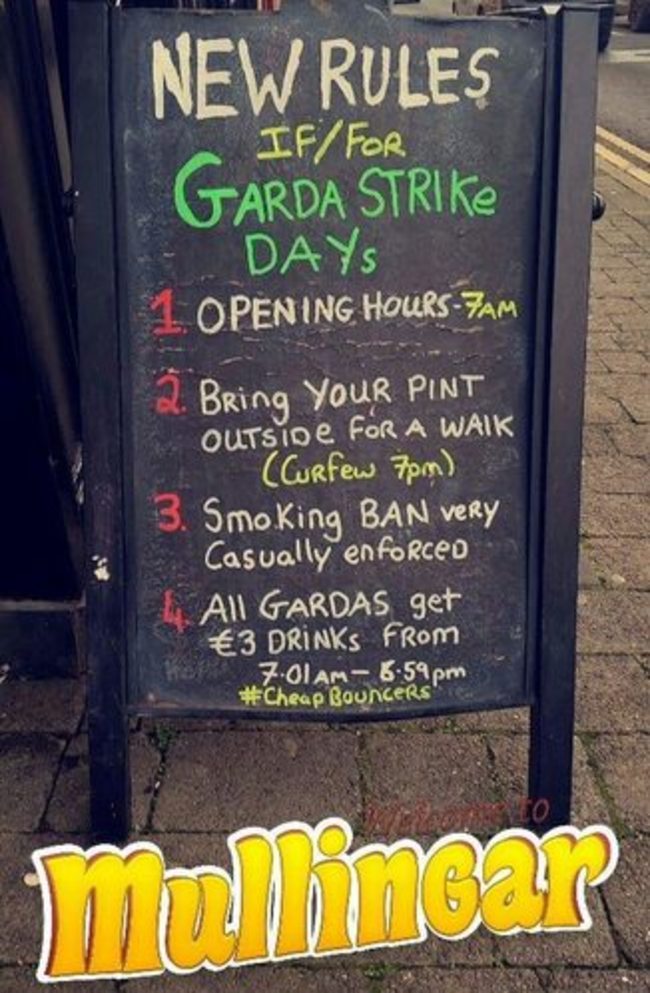 NEW RULES
IF/FOR
GARDA STRIKe
DAYs
1. OPENING HOURS-7AM
2. BRing YOUR PINT
OUTSIDe FOR A WAlK
(CURFew 7pm)
3. SmoKing BAN veRy
Casually enfoRceD
4. All GARDAS get
€3 DRiNKs FRom
7.01AM - 6.59pm
#CheapBounceRs
Welcome to
Mullingar